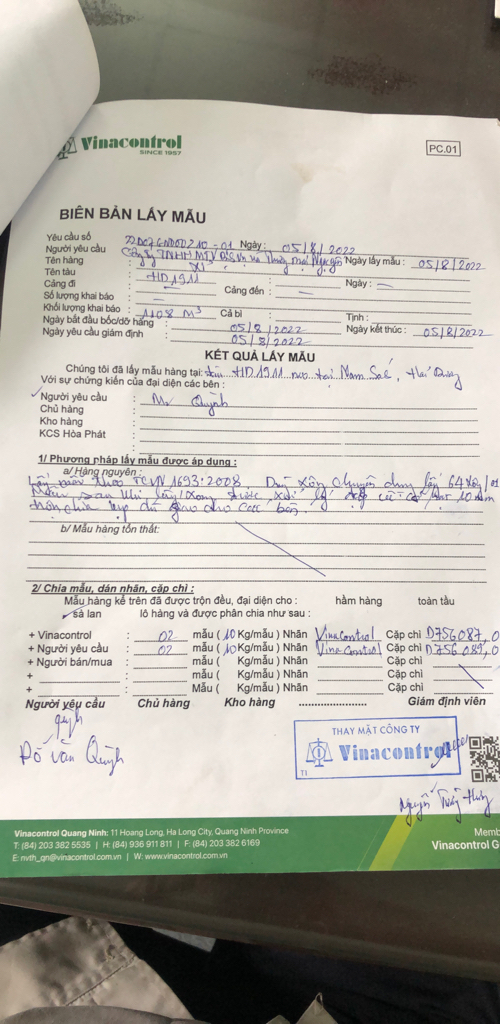 Vinacontrol
SINCE 1957
PC.01
BIÊN BẢN LẤY MẪU
Yêu cầu số : 22D07GND00210-01 Ngày : 05/8/2022
Người yêu cầu : Công ty TNHH MTV
Tên hàng : Xỉ Ngày lấy mẫu : 05/8/2022
Tên tàu : HD1911
Cảng đi : — Cảng đến : Ngày : —
Số lượng khai báo : —
Khối lượng khai báo : 1108 M³ Cả bì : Tịnh :
Ngày bắt đầu bốc/dỡ hàng : 05/8/2022 Ngày kết thúc : 05/8/2022
Ngày yêu cầu giám định : 05/8/2022
KẾT QUẢ LẤY MẪU
Chúng tôi đã lấy mẫu hàng tại: tàu HD1911 neo tại Nam Sơn, Hải Dương
Với sự chứng kiến của đại diện các bên :
Người yêu cầu : Mr Quỳnh
Chủ hàng :
Kho hàng :
KCS Hòa Phát :
1/ Phương pháp lấy mẫu được áp dụng :
a/ Hàng nguyên :
Lấy mẫu theo TCVN 1693:2008. Dùng xẻng chuyên dụng lấy 64
Mẫu sau khi lấy xong được xử lý cỡ hạt 10mm
chia giao cho các bên.
b/ Mẫu hàng tổn thất:
2/ Chia mẫu, dán nhãn, cặp chì :
Mẫu hàng kể trên đã được trộn đều, đại diện cho : hầm hàng toàn tàu
sà lan lô hàng và được phân chia như sau :
+ Vinacontrol : 02 mẫu ( 10 Kg/mẫu ) Nhãn Vinacontrol Cặp chì D756087, 0
+ Người yêu cầu : 02 mẫu ( 10 Kg/mẫu ) Nhãn Vinacontrol Cặp chì D756089, 0
+ Người bán/mua : mẫu ( Kg/mẫu ) Nhãn Cặp chì
+ : mẫu ( Kg/mẫu ) Nhãn Cặp chì
+ : Mẫu ( Kg/mẫu ) Nhãn Cặp chì
Người yêu cầu Chủ hàng Kho hàng ........................ Giám định viên
quỳnh
Đỗ văn Quỳnh
THAY MẶT CÔNG TY
Vinacontrol
T1
Nguyễn
Vinacontrol Quang Ninh: 11 Hoang Long, Ha Long City, Quang Ninh Province
T: (84) 203 382 5535 | H: (84) 936 911 811 | F: (84) 203 382 6169
E: nvth_qn@vinacontrol.com.vn | W: www.vinacontrol.com.vn
Memb
Vinacontrol G